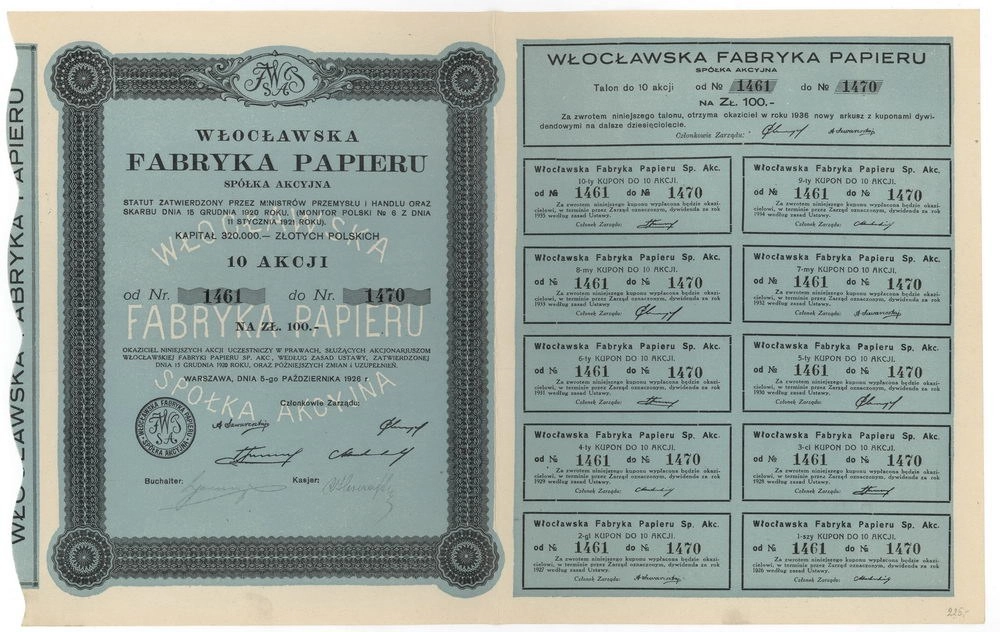 WŁOCŁAWSKA FABRYKA PAPIERU
WŁOCŁAWSKA
FABRYKA PAPIERU
SPÓŁKA AKCYJNA
STATUT ZATWIERDZONY PRZEZ MINISTRÓW PRZEMYSŁU I HANDLU ORAZ
SKARBU DNIA 15 GRUDNIA 1920 ROKU. (MONITOR POLSKI № 6 Z DNIA
11 STYCZNIA 1921 ROKU).
KAPITAŁ 320.000.— ZŁOTYCH POLSKICH
WŁOCŁAWSKA
10 AKCJI
od Nr. 1461 do Nr. 1470
FABRYKA PAPIERU
NA ZŁ. 100.-
OKAZICIEL NINIEJSZYCH AKCJI UCZESTNICZY W PRAWACH, SŁUŻĄCYCH AKCJONARJUSZOM
WŁOCŁAWSKIEJ FABRYKI PAPIERU SP. AKC., WEDŁUG ZASAD USTAWY, ZATWIERDZONEJ
DNIA 15 GRUDNIA 1920 ROKU, ORAZ PÓŹNIEJSZYCH ZMIAN I UZUPEŁNIEŃ.
WARSZAWA, DNIA 5-go PAŹDZIERNIKA 1926 r.
SPÓŁKA AKCYJNA
Członkowie Zarządu:
WŁOCŁAWSKA FABRYKA PAPIERU
SPÓŁKA AKCYJNA
Buchalter:
Kasjer:
WŁOCŁAWSKA FABRYKA PAPIERU
SPÓŁKA AKCYJNA
Talon do 10 akcji od № 1461 do № 1470
NA ZŁ. 100.-
Za zwrotem niniejszego talonu, otrzyma okaziciel w roku 1936 nowy arkusz z kuponami dywi-
dendowymi na dalsze dziesięciolecie.
Członkowie Zarządu:
Włocławska Fabryka Papieru Sp. Akc.
10-ty KUPON DO 10 AKCJI.
od № 1461 do № 1470
Za zwrotem niniejszego kuponu wypłacona będzie okazi-
cielowi, w terminie przez Zarząd oznaczonym, dywidenda za rok
1935 według zasad Ustawy.
Członek Zarządu:
Włocławska Fabryka Papieru Sp. Akc.
9-ty KUPON DO 10 AKCJI.
od № 1461 do № 1470
Za zwrotem niniejszego kuponu wypłacona będzie okazi-
cielowi, w terminie przez Zarząd oznaczonym, dywidenda za rok
1934 według zasad Ustawy.
Członek Zarządu:
Włocławska Fabryka Papieru Sp. Akc.
8-my KUPON DO 10 AKCJI.
od № 1461 do № 1470
Za zwrotem niniejszego kuponu wypłacona będzie okazi-
cielowi, w terminie przez Zarząd oznaczonym, dywidenda za rok
1933 według zasad Ustawy.
Członek Zarządu:
Włocławska Fabryka Papieru Sp. Akc.
7-my KUPON DO 10 AKCJI.
od № 1461 do № 1470
Za zwrotem niniejszego kuponu wypłacona będzie okazi-
cielowi, w terminie przez Zarząd oznaczonym, dywidenda za rok
1932 według zasad Ustawy.
Członek Zarządu:
Włocławska Fabryka Papieru Sp. Akc.
6-ty KUPON DO 10 AKCJI.
od № 1461 do № 1470
Za zwrotem niniejszego kuponu wypłacona będzie okazi-
cielowi, w terminie przez Zarząd oznaczonym, dywidenda za rok
1931 według zasad Ustawy.
Członek Zarządu:
Włocławska Fabryka Papieru Sp. Akc.
5-ty KUPON DO 10 AKCJI.
od № 1461 do № 1470
Za zwrotem niniejszego kuponu wypłacona będzie okazi-
cielowi, w terminie przez Zarząd oznaczonym, dywidenda za rok
1930 według zasad Ustawy.
Członek Zarządu:
Włocławska Fabryka Papieru Sp. Akc.
4-ty KUPON DO 10 AKCJI.
od № 1461 do № 1470
Za zwrotem niniejszego kuponu wypłacona będzie okazi-
cielowi, w terminie przez Zarząd oznaczonym, dywidenda za rok
1929 według zasad Ustawy.
Członek Zarządu:
Włocławska Fabryka Papieru Sp. Akc.
3-ci KUPON DO 10 AKCJI.
od № 1461 do № 1470
Za zwrotem niniejszego kuponu wypłacona będzie okazi-
cielowi, w terminie przez Zarząd oznaczonym, dywidenda za rok
1928 według zasad Ustawy.
Członek Zarządu:
Włocławska Fabryka Papieru Sp. Akc.
2-gi KUPON DO 10 AKCJI.
od № 1461 do № 1470
Za zwrotem niniejszego kuponu wypłacona będzie okazi-
cielowi, w terminie przez Zarząd oznaczonym, dywidenda za rok
1927 według zasad Ustawy.
Członek Zarządu:
Włocławska Fabryka Papieru Sp. Akc.
1-szy KUPON DO 10 AKCJI.
od № 1461 do № 1470
Za zwrotem niniejszego kuponu wypłacona będzie okazi-
cielowi, w terminie przez Zarząd oznaczonym, dywidenda za rok
1926 według zasad Ustawy.
Członek Zarządu:
225,-